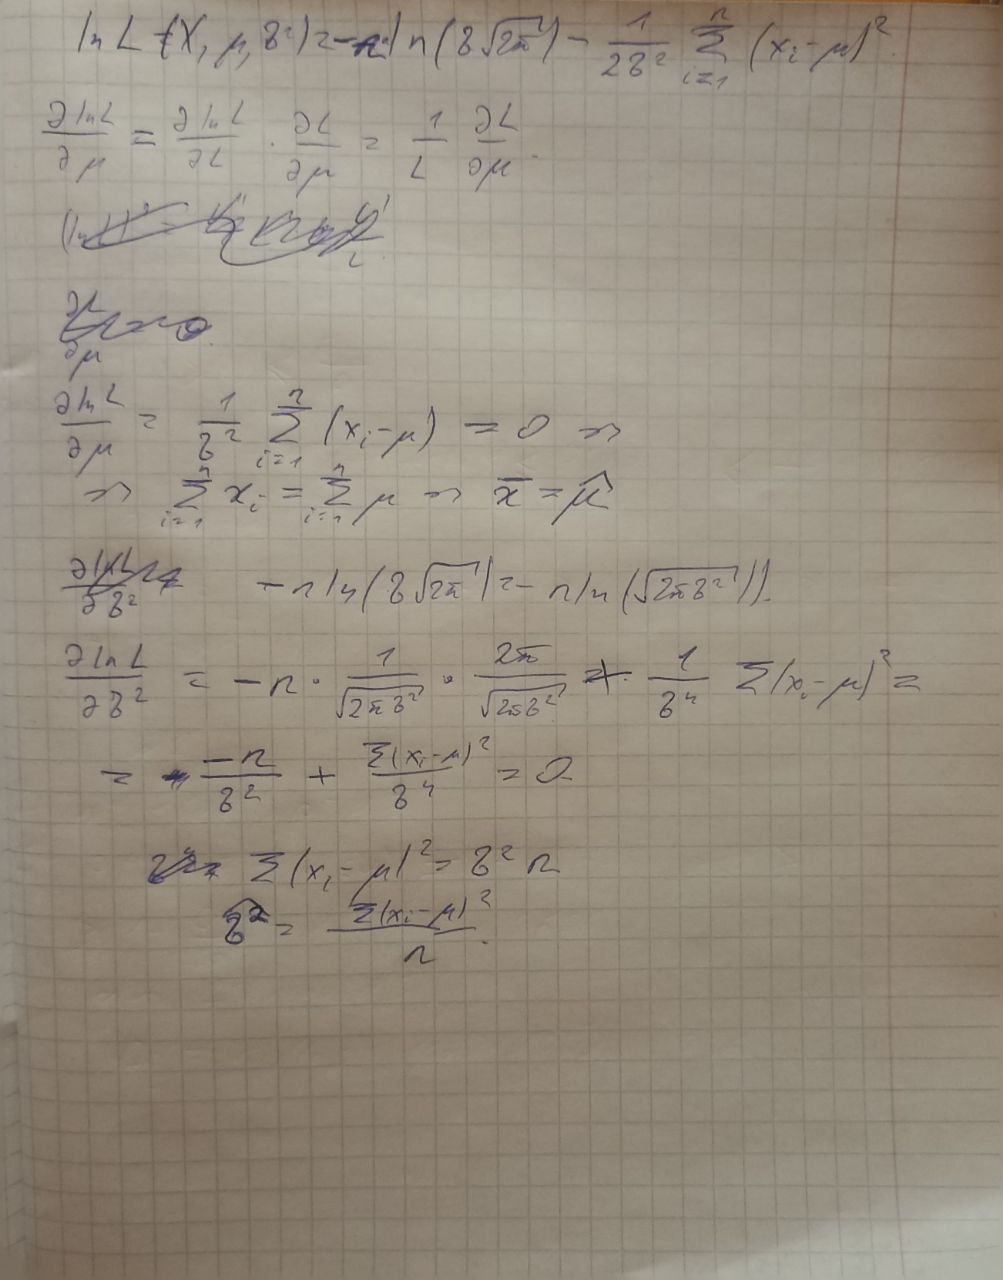 ln L (X, μ, σ²) = -n ln(σ√2π) - 1/2σ² Σ_{i=1}^{n} (x_i - μ)².
∂lnL/∂μ = ∂lnL/∂L · ∂L/∂μ = 1/L ∂L/∂μ.
∂lnL/∂μ = 1/σ² Σ_{i=1}^{n} (x_i - μ) = 0 ⇒
⇒ Σ_{i=1}^{n} x_i = Σ_{i=1}^{n} μ ⇒ x̄ = μ̂
-n ln(σ√2π) = -n ln(√2πσ²)).
∂lnL/∂σ² = -n · 1/√2πσ² · 2π/√2πσ² + 1/σ⁴ Σ(x_i - μ)² =
= -n/σ² + Σ(x_i - μ)²/σ⁴ = 0
Σ(x_i - μ)² = σ² n
σ̂² = Σ(x_i - μ)²/n.